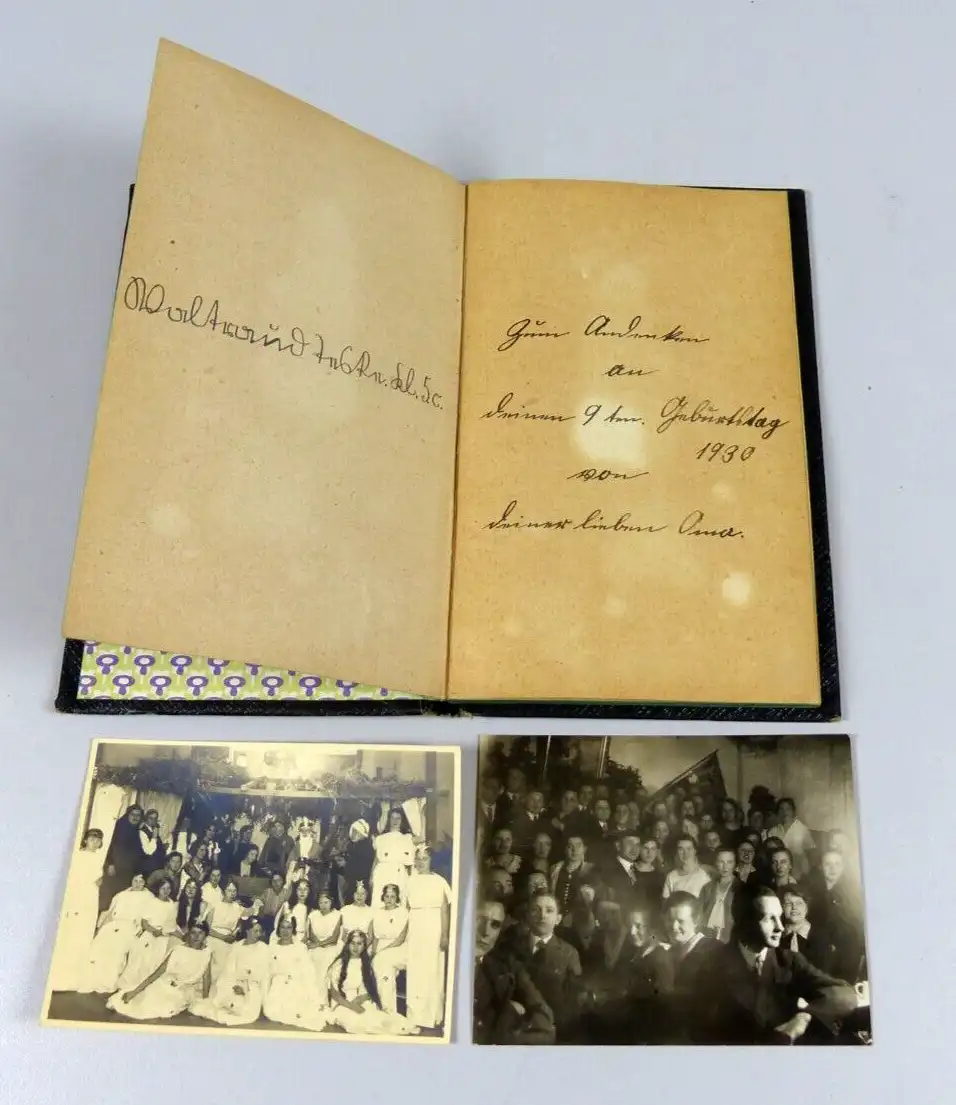 Waltraud Teske. Kl. 5c.
Zum Andenken
an
deinen 9 ten. Geburtstag
1930
von
deiner lieben Oma.